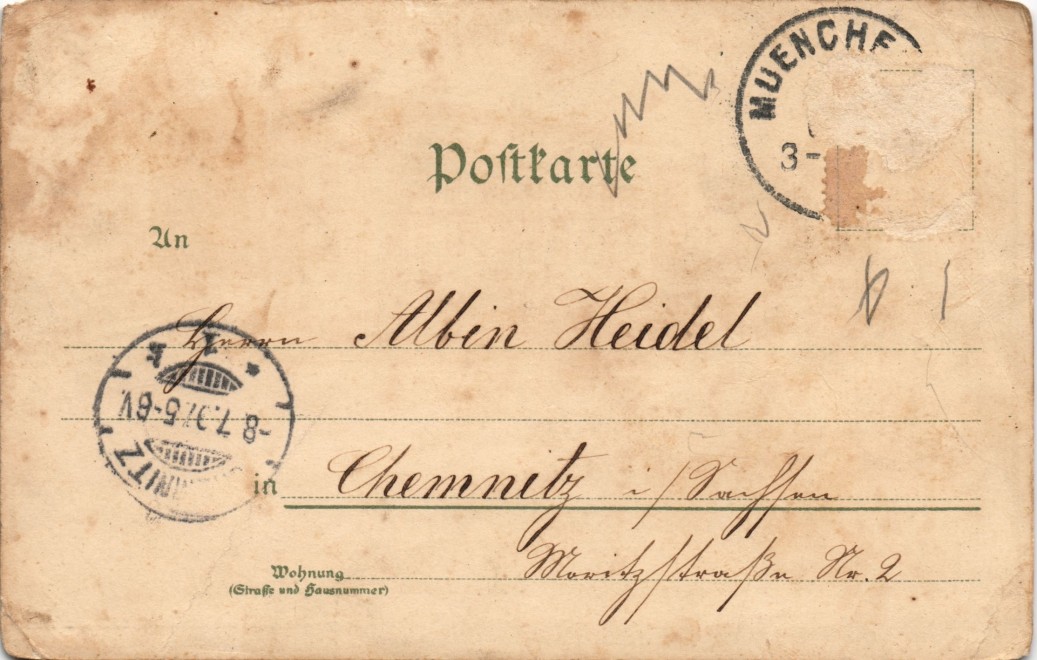 MUENCHE
3-
Postkarte
An
Herrn Albin Heidel
-8.7.97.5-6V.
in Chemnitz i/Sachsen
Wohnung Moritzstraße Nr. 2
(Straße und Hausnummer)